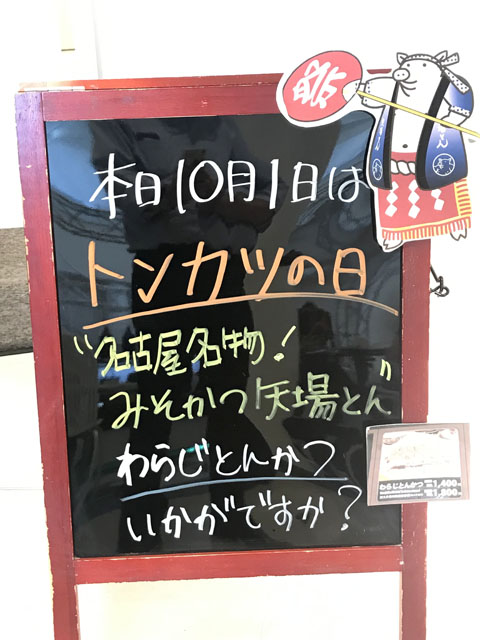 本日10月1日は
トンカツの日
"名古屋名物!
みそかつ矢場とん"
わらじとんかつ
いかがですか?
わらじとんかつ 1,400
1,800